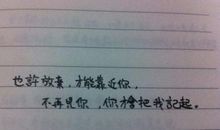 也許放棄，才能靠近你，
不再見你，你才會把我記起。